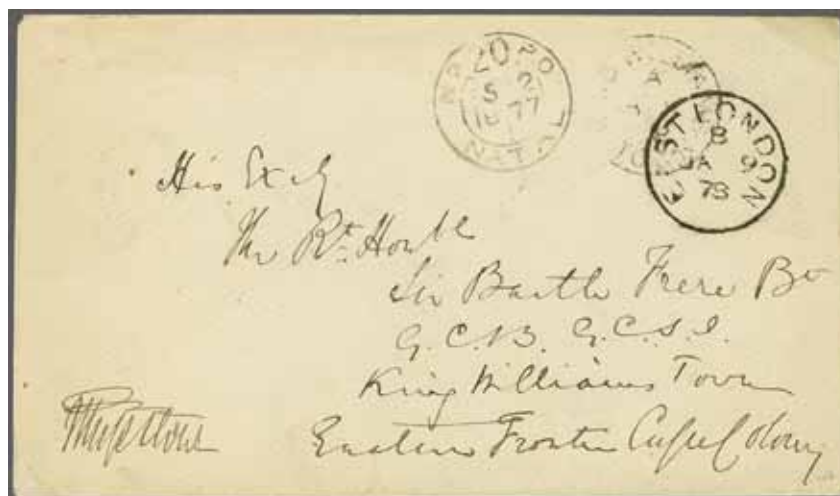 No 20 PO
S 2
1877
NATAL
A
EAST LONDON
B
JA 9
78
His Excy
The Rt. Honble
Sir Bartle Frere Bt
G.C.B. G.C.S.I.
King Williams Town
Eastern Frontier Cape Colony